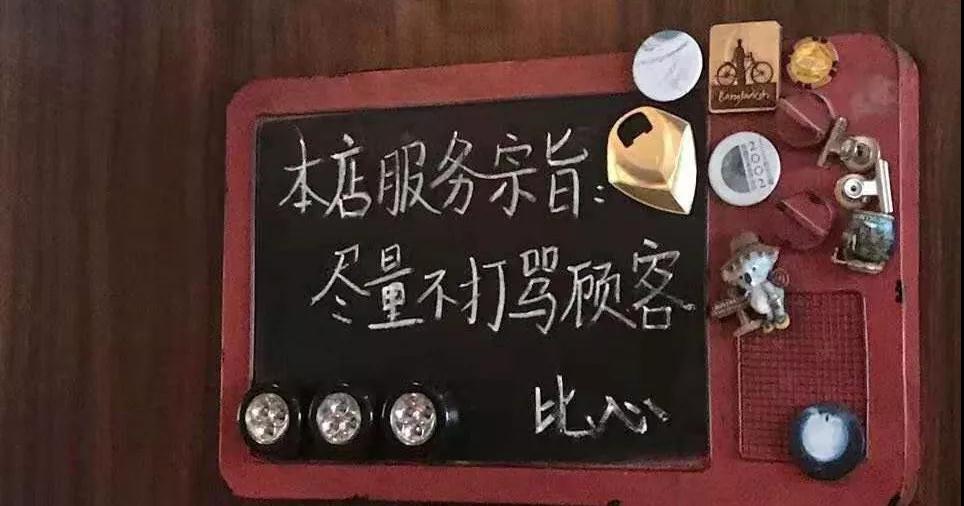 本店服务宗旨:
尽量不打骂顾客
比心
Bangladesh
2002